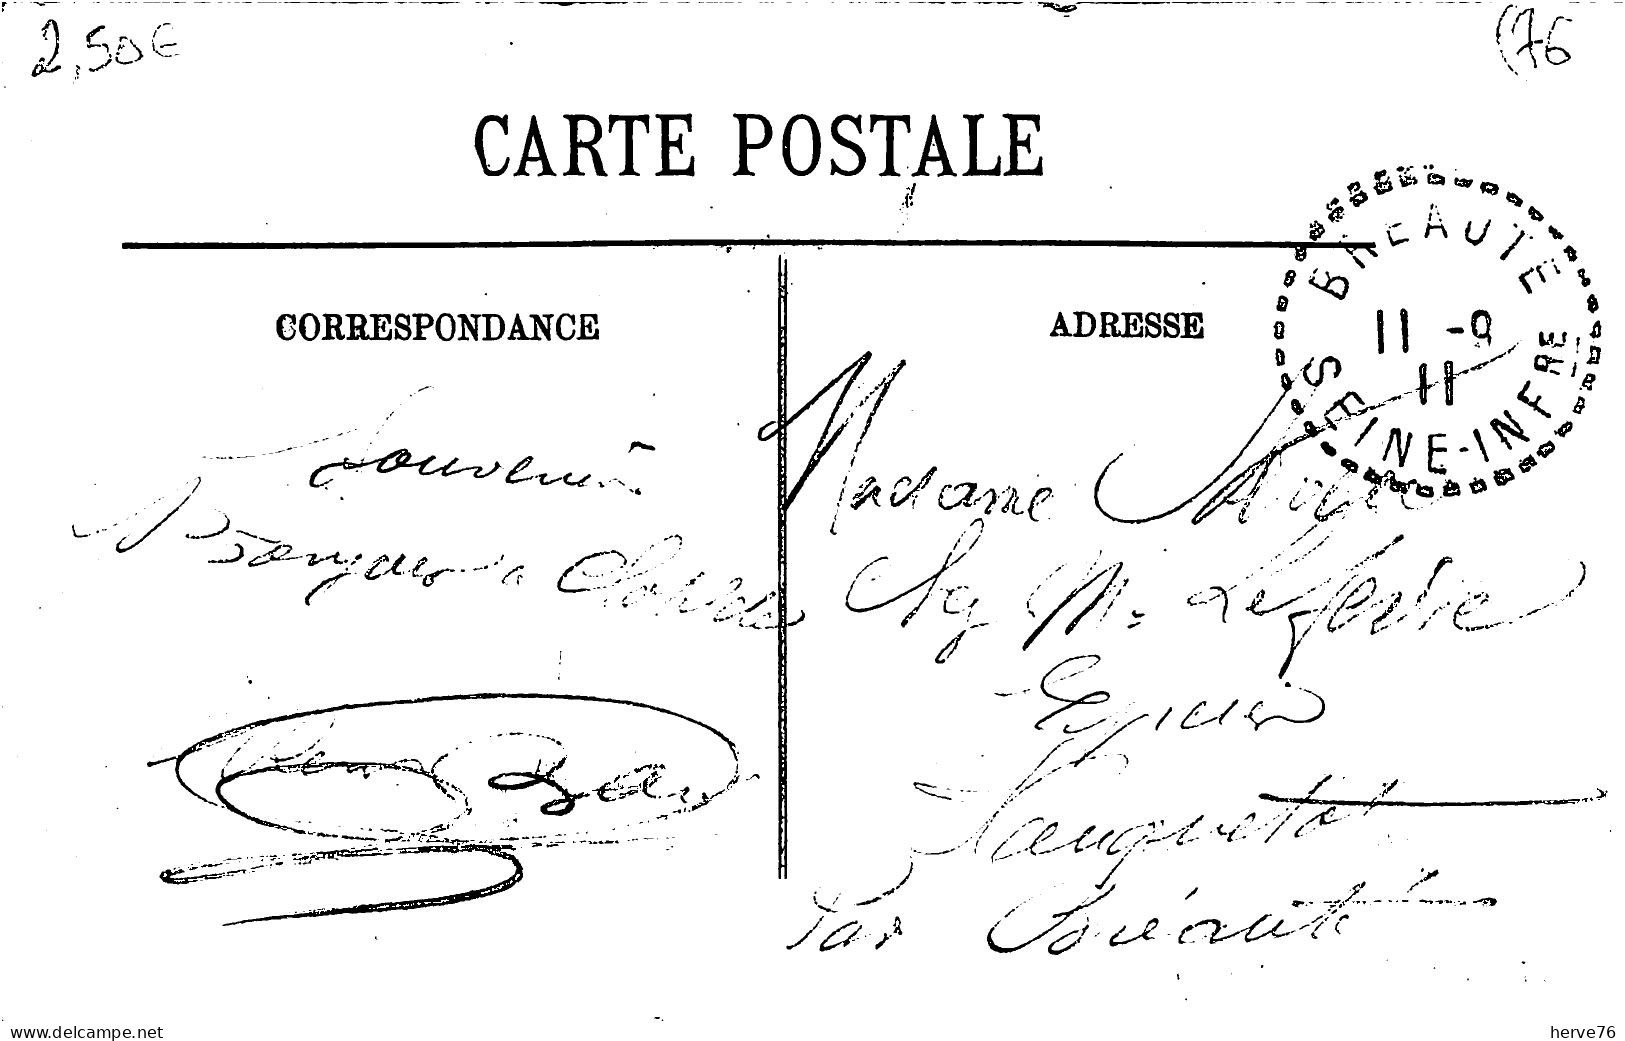 2,50€
(76
CARTE POSTALE
BREAUTE
11 -9
11
SEINE-INFRE
CORRESPONDANCE
ADRESSE
Souvenir
Bonjour a
Madame
Chez Mr Lefebvre
Epicier
Vauquetot
Par Bréauté
www.delcampe.net
herve76